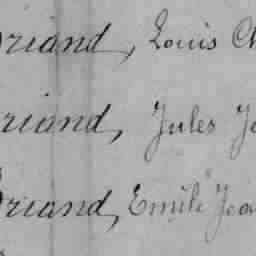 Briand, Louis Ch
Briand, Jules Je
Briand, Emile Jea